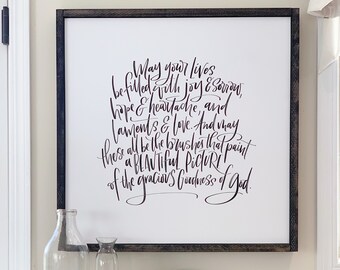 May your lives
be filled with joy & sorrow,
hope & heartache, and
laments & love. And may
these all be the brushes that paint
a BEAUTIFUL PICTURE
of the gracious Goodness of God.